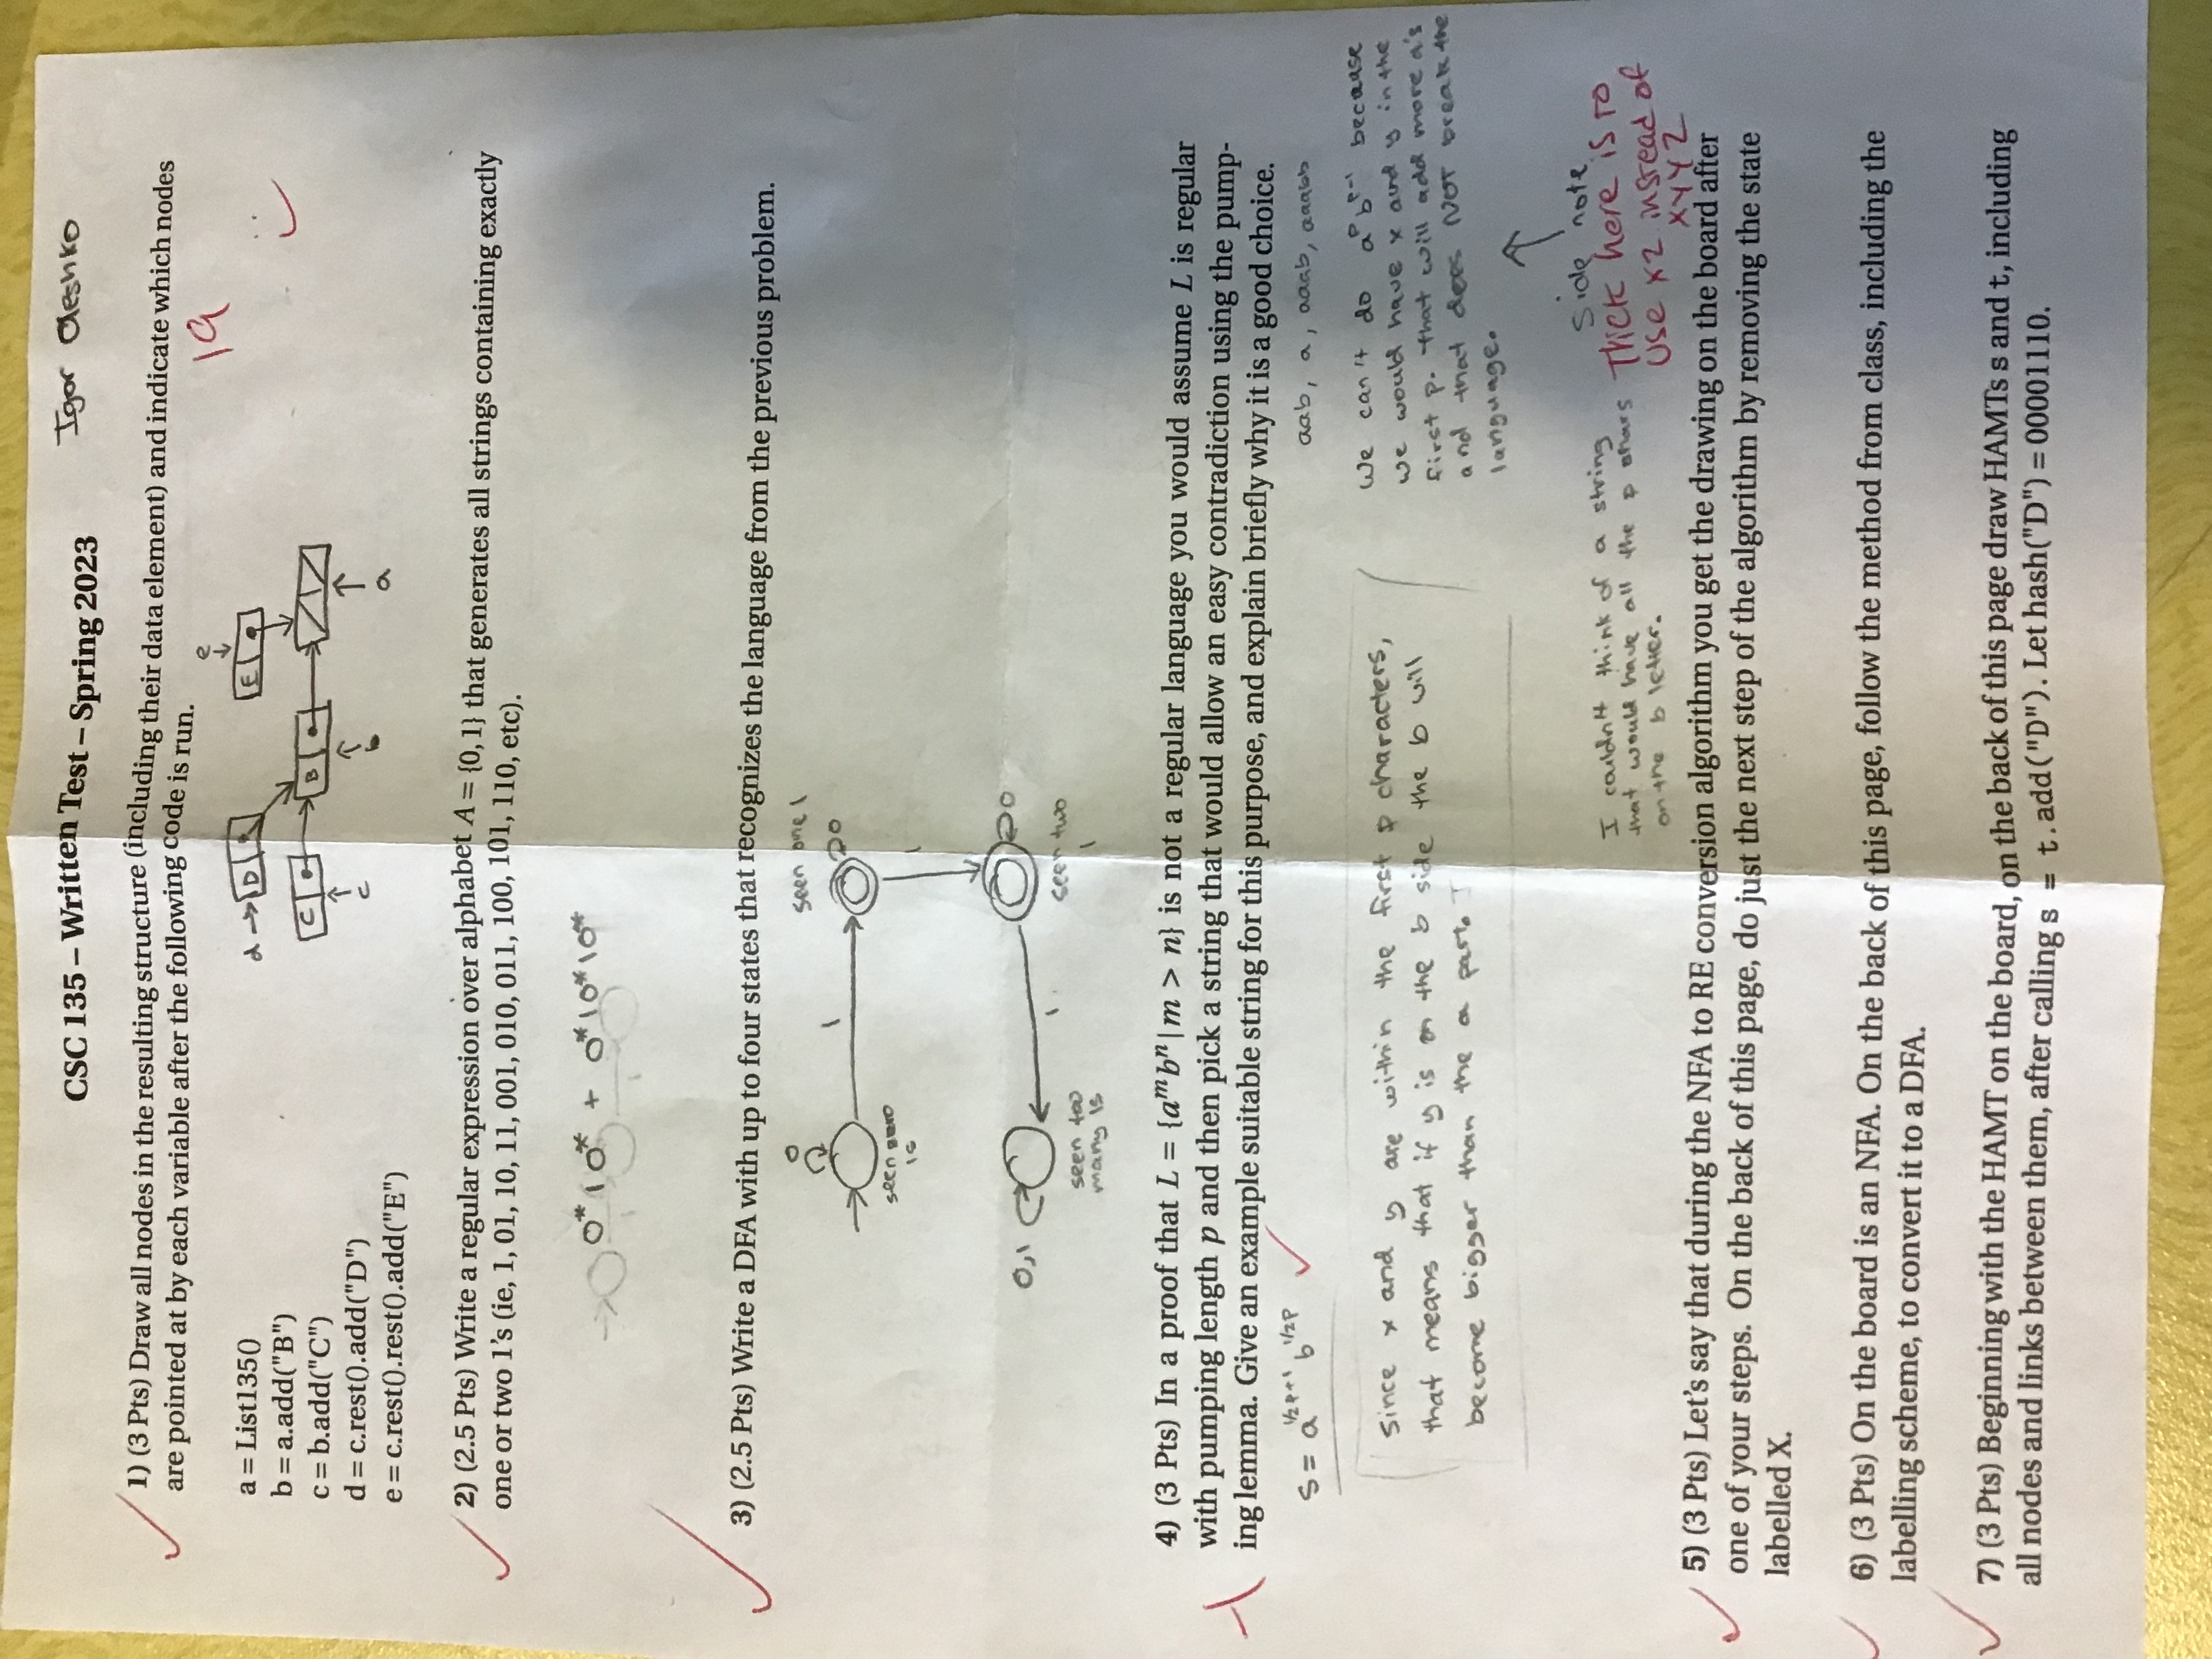 CSC 135 – Written Test – Spring 2023
Igor Oleshko
1) (3 Pts) Draw all nodes in the resulting structure (including their data element) and indicate which nodes
are pointed at by each variable after the following code is run.
19
a = List135()
b = a.add("B")
c = b.add("C")
d = c.rest().add("D")
e = c.rest().rest().add("E")
e
d → D
E
C
B
c
b
a
2) (2.5 Pts) Write a regular expression over alphabet A = {0, 1} that generates all strings containing exactly
one or two 1's (ie, 1, 01, 10, 11, 001, 010, 011, 100, 101, 110, etc).
0*10* + 0*10*10*
3) (2.5 Pts) Write a DFA with up to four states that recognizes the language from the previous problem.
0
seen one 1
1
0
seen zero
1s
1
0,1
0
1
seen too
many 1s
seen two
1
4) (3 Pts) In a proof that L = {aᵐbⁿ | m > n} is not a regular language you would assume L is regular
with pumping length p and then pick a string that would allow an easy contradiction using the pump-
ing lemma. Give an example suitable string for this purpose, and explain briefly why it is a good choice.
-1
S = a^1/2p+1 b^1/2p
aab, a, aaab, aaabb
Since x and y are within the first p characters,
that means that if y is on the b side the b will
become bigger than the a part.
We can't do aᵖbᵖ⁻¹ because
we would have x and y in the
first p. That will add more a's
and that does NOT break the
language.
Side note
I couldn't think of a string
that would have all the p chars
on the b letter.
Trick here is to
use xz instead of
xyyz
5) (3 Pts) Let's say that during the NFA to RE conversion algorithm you get the drawing on the board after
one of your steps. On the back of this page, do just the next step of the algorithm by removing the state
labelled X.
6) (3 Pts) On the board is an NFA. On the back of this page, follow the method from class, including the
labelling scheme, to convert it to a DFA.
7) (3 Pts) Beginning with the HAMT on the board, on the back of this page draw HAMTs s and t, including
all nodes and links between them, after calling s = t.add("D"). Let hash("D") = 00001110.